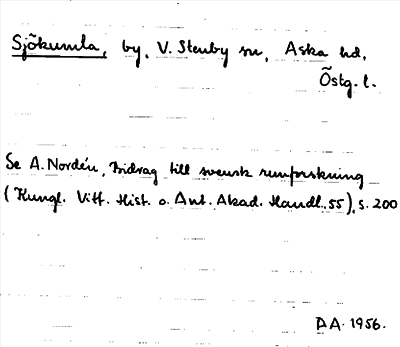 Sjökumla, by, V. Stenby sn, Aska hd,
Östg. l.
Se A. Nordén, Bidrag till svensk runforskning
(Kungl. Vitt. Hist. o. Ant. Akad. Handl. 55), s. 200
D A. 1956.